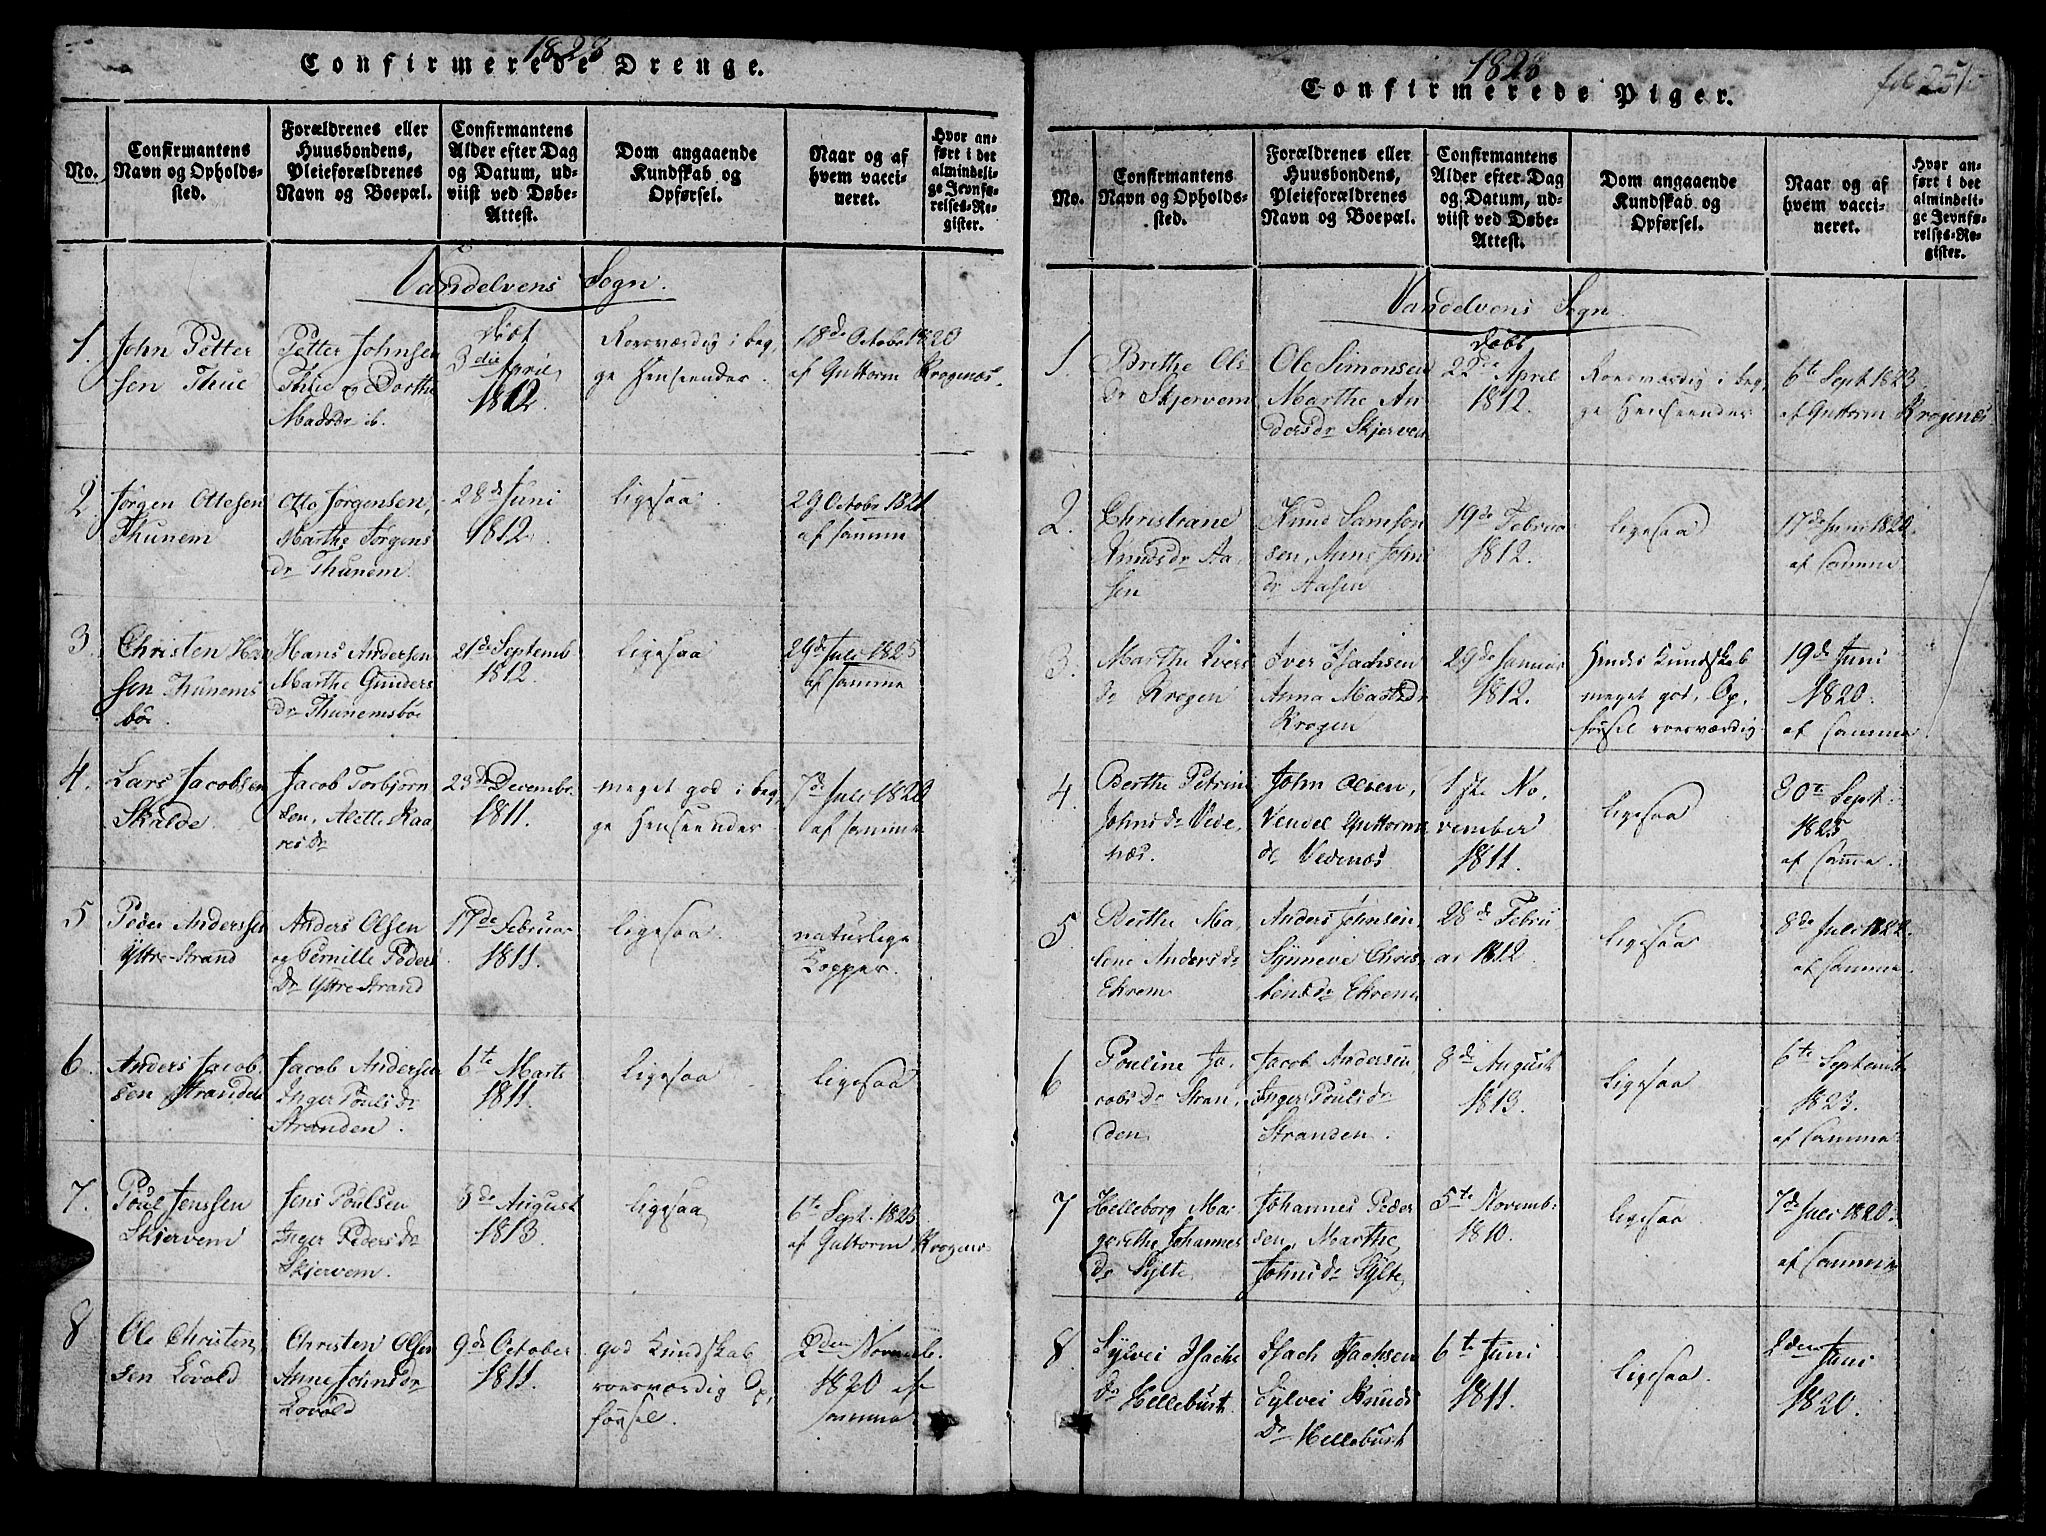 1828
Confirmerede Drenge.
No.
Confirmantens
Navn og Opholds-
sted.
Forældrenes eller
Huusbondens,
Pleieforældrenes
Navn og Boepæl.
Confirmantens
Alder efter Dag
og Datum, ud-
viist ved Døbe-
Attest.
Dom angaaende
Kundskab og
Opførsel.
Naar og af
hvem vacci-
neret.
Hvor an-
ført i det
almindeli-
ge Jevnfø-
relses-Re-
gister.
Vandelvens Sogn.
1.
John Petter
sen Thue
Petter Johnsen
Thue og Dorthe
Madsdr ib.
Døbt
3die April
1812.
Roesværdig i beg,
ge Henseender.
18de Octobr 1820
af Guttorm Krogenæs
2.
Jørgen Ottesen
Thunem
Otto Jørgensen,
Marthe Jørgens
dr Thunem.
28de Juni
1812.
ligesaa
29 Octobr 1821
af samme
3.
Christen Han
sen Thunems
böe.
Hans Andersen
Marthe Gunders
dr Thunemsböe
21de Septemb
1812.
ligesaa
29de Juli 1825
af samme
4.
Lars Jacobsen
Skalde.
Jacob Torbjörn
sen, Alette Kaa
resdr
23de Decembr.
1811.
meget god i beg,
ge Henseender.
7de Juli 1820
af samme
5
Peder Anderssen
Yttre-Strand
Anders Olsen
og Pernille Peders
Dr Yttre Strand
17de Februar
1811.
ligesaa.
naturlige
Kopper.
6.
Anders Jacob
sen Stranden
Jacob Andersen
Inger Poulsdr
Stranden.
6te Marts
1811.
ligesaa
ligesaa
7.
Poul Jenssen
Skjervem
Jens Poulsen
Inger Pedersdr
Skjervem.
3de August
1813.
ligesaa
6te Sept. 1823.
af Guttorm Krogenæs
8
Ole Christen
sen Lövold
Christen Olsen
Anne Johnsdr
Lovold
9de October
1811.
god Kundskab
roesværdig Op,
førsel.
2den Novemb.
1820 af
samme
1828
Confirmerede Piger.
fol 251.
No.
Confirmantens
Navn og Opholds-
sted.
Forældrenes eller
Huusbondens,
Pleieforældrenes
Navn og Boepæl.
Confirmantens
Alder efter Dag
og Datum, ud-
viist ved Døbe-
Attest.
Dom angaaende
Kundskab og
Opførsel.
Naar og af
hvem vacci-
neret.
Hvor an-
ført i det
almindeli-
ge Jevnfø-
relses-Re-
gister.
Vandelvens Sogn.
1.
Brithe Ols
Dr Skjervem
Ole Simonsen
Marthe An
dersdr Skjervem
Døbt
22de April
1812.
Roesværdig i beg,
ge Henseender
6te Sept 1823.
af Guttorm Krogenæs
2.
Christiane
Knudsdr Aa,
sen
Knud Samson
sen, Anne Johns
dr Aasen
19de Februar
1812.
ligesaa
17de Juni 1820.
af samme
3.
Marthe Ivers
dr Krogen
Iver Isachsen
Anna Madsdr
Krogen
29de Januar
1812.
Hendes Kundskab
meget god, Op,
førsel roesværdig
19de Juni
1820.
af samme
4.
Berthe Petrine
Johnsdr Vede,
næs.
John Olsen,
Vendel Guttorms
dr Vedenæs
1ste No,
vember
1811.
ligesaa
30te Sept.
1825
af samme.
5.
Berthe Ma,
lene Andersdr
Ekrem
Anders Johnsen,
Synneve Chris,
tensdr Ekrem
28de Febru
ar 1812
ligesaa
8de Juli 1822.
af samme.
6
Pouline Ja,
cobsdr Stran,
den
Jacob Andersen,
Inger Poulsdr
Stranden.
8de August
1813.
ligesaa
6te Septemb
1823.
af samme
7
Helleborg Mar,
grethe Johannes
dr Sylte
Johannes Peder
sen, Marthe
Johnsdr Sylte,
5te Novemb.
1810.
ligesaa.
7de Juli 1820.
af samme
8.
Sylvei Isachs
dr Hellebust.
Isach Isachsen
Sylvei Knuds
Dr Hellebust
6te Juni
1811.
ligesaa.
8den Juni
1820.